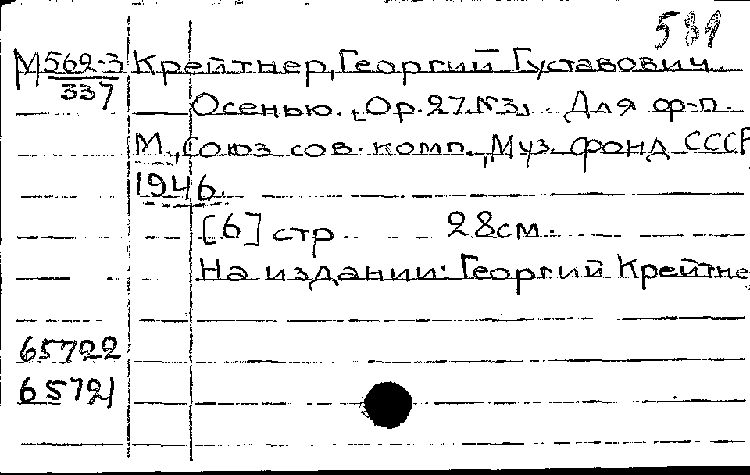 581
М562-3 Крейтнер, Георгий Густавович.
337
Осенью. [Ор.27.№3]. Для ф-п.
М., Союз сов. комп., Муз. фонд СССР
1946.
[6] стр. 28см.
На издании: Георгий Крейтне
65722
65721